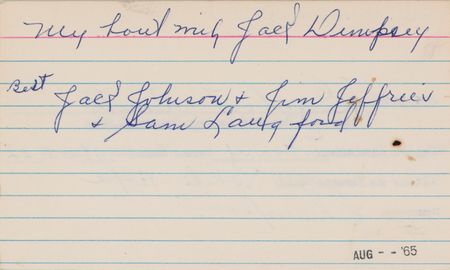 My bout with Jack Dempsey
Best Jack Johnson + Jim Jeffries
+ Sam Langford
AUG - - '65